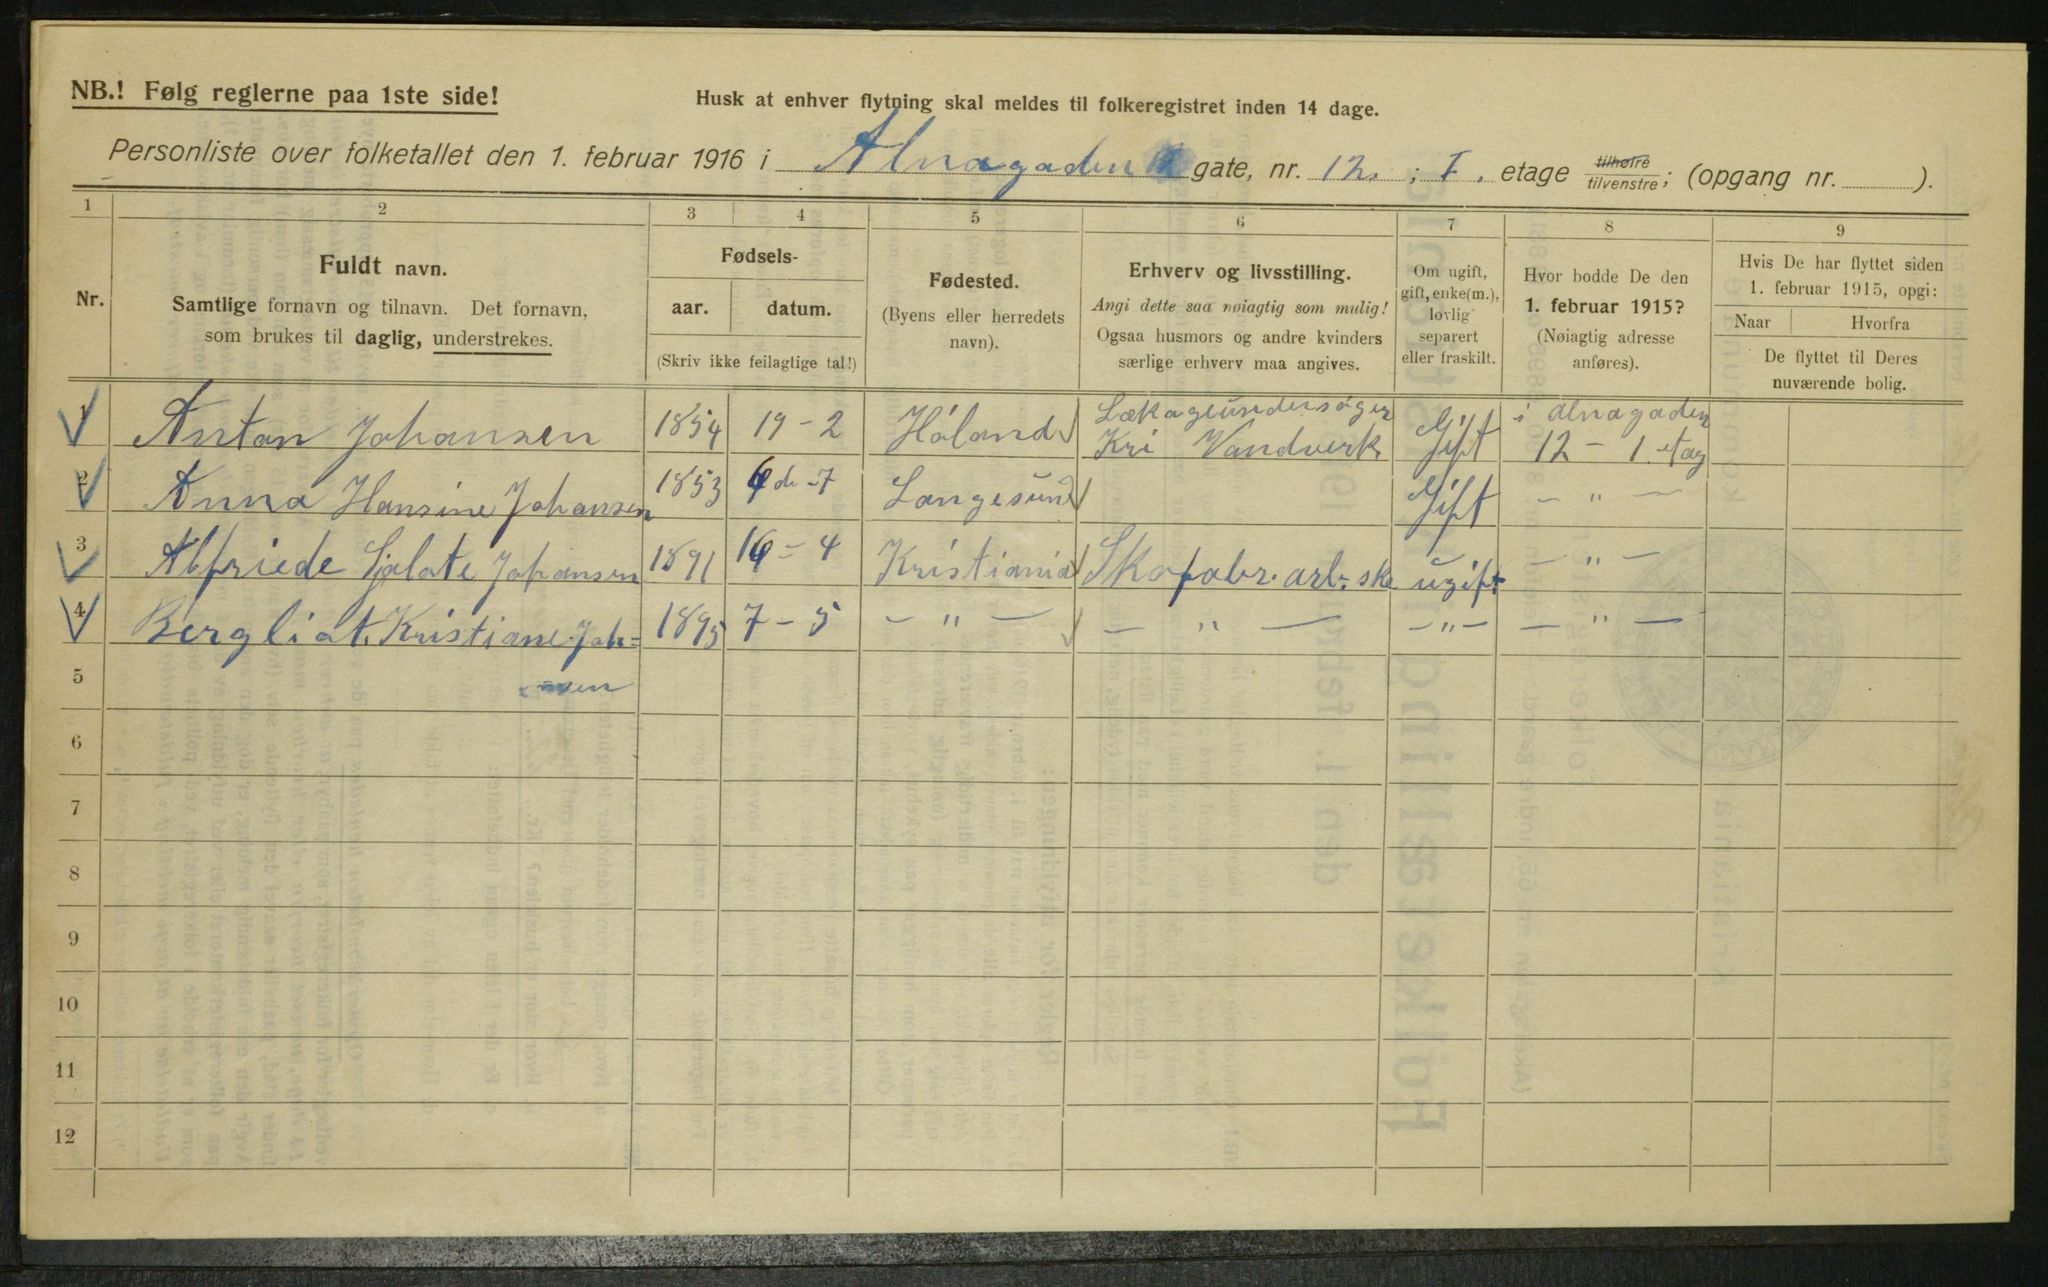 NB.! Følg reglerne paa 1ste side!
Husk at enhver flytning skal meldes til folkeregistret inden 14 dage.
Personliste over folketallet den 1. februar 1916 i Alnagaden gate, nr. 12. ; I. etage tilhøire tilvenstre; (opgang nr. ).
1 2 3 4 5 6 7 8 9
Nr.
Fuldt navn.
Samtlige fornavn og tilnavn. Det fornavn,
som brukes til daglig, understrekes.
Fødsels-
aar. datum.
(Skriv ikke feilagtige tal!)
Fødested.
(Byens eller herredets
navn).
Erhverv og livsstilling.
Angi dette saa nøiagtig som mulig!
Ogsaa husmors og andre kvinders
særlige erhverv maa angives.
Om ugift,
gift, enke(m.),
lovlig
separert
eller fraskilt.
Hvor bodde De den
1. februar 1915?
(Nøiagtig adresse
anføres).
Hvis De har flyttet siden
1. februar 1915, opgi:
Naar Hvorfra
De flyttet til Deres
nuværende bolig.
1 Anton Johansen 1854 19 - 2 Høland Lækageundersøger Kri Vandverk Gift i Alnagaden 12 - 1. etag
2 Anna Hansine Johansen 1853 de - 7 Langesund Gift - " -
3 Alfriede Johansen 1891 - 4 Kristiania Skofabr. arb. ske ugift - " -
4 Bergliot Kristiane Joh= 1895 7 - 5 - " - - " - - " - - " -
5
6
7
8
9
10
11
12